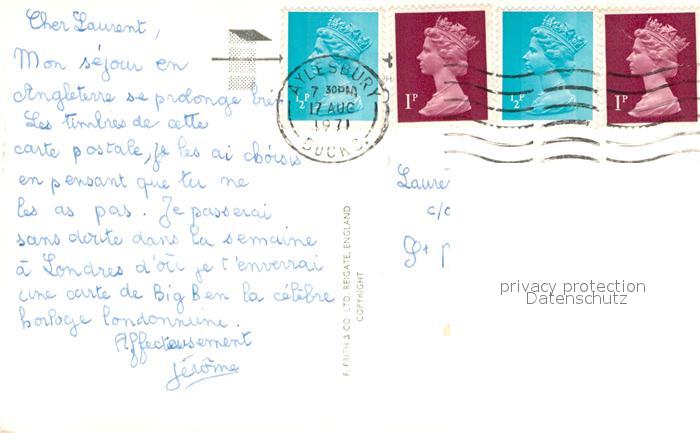 Cher Laurent,
Mon séjour en
Angleterre se prolonge
Les timbres de cette
carte postale, je les ai choisis
en pensant que tu ne
les as pas. Je passerai
sans doute dans la semaine
à Londres d'où je t'enverrai
une carte de Big Ben la célèbre
horloge londonnienne.
Affectueusement
Jérôme
½P
1P
½P
1P
AYLESBURY
7 30PM
17 AUG
1971
BUCKS
F. FRITH & CO. LTD. REIGATE, ENGLAND
COPYRIGHT
c/o
privacy protection
Datenschutz